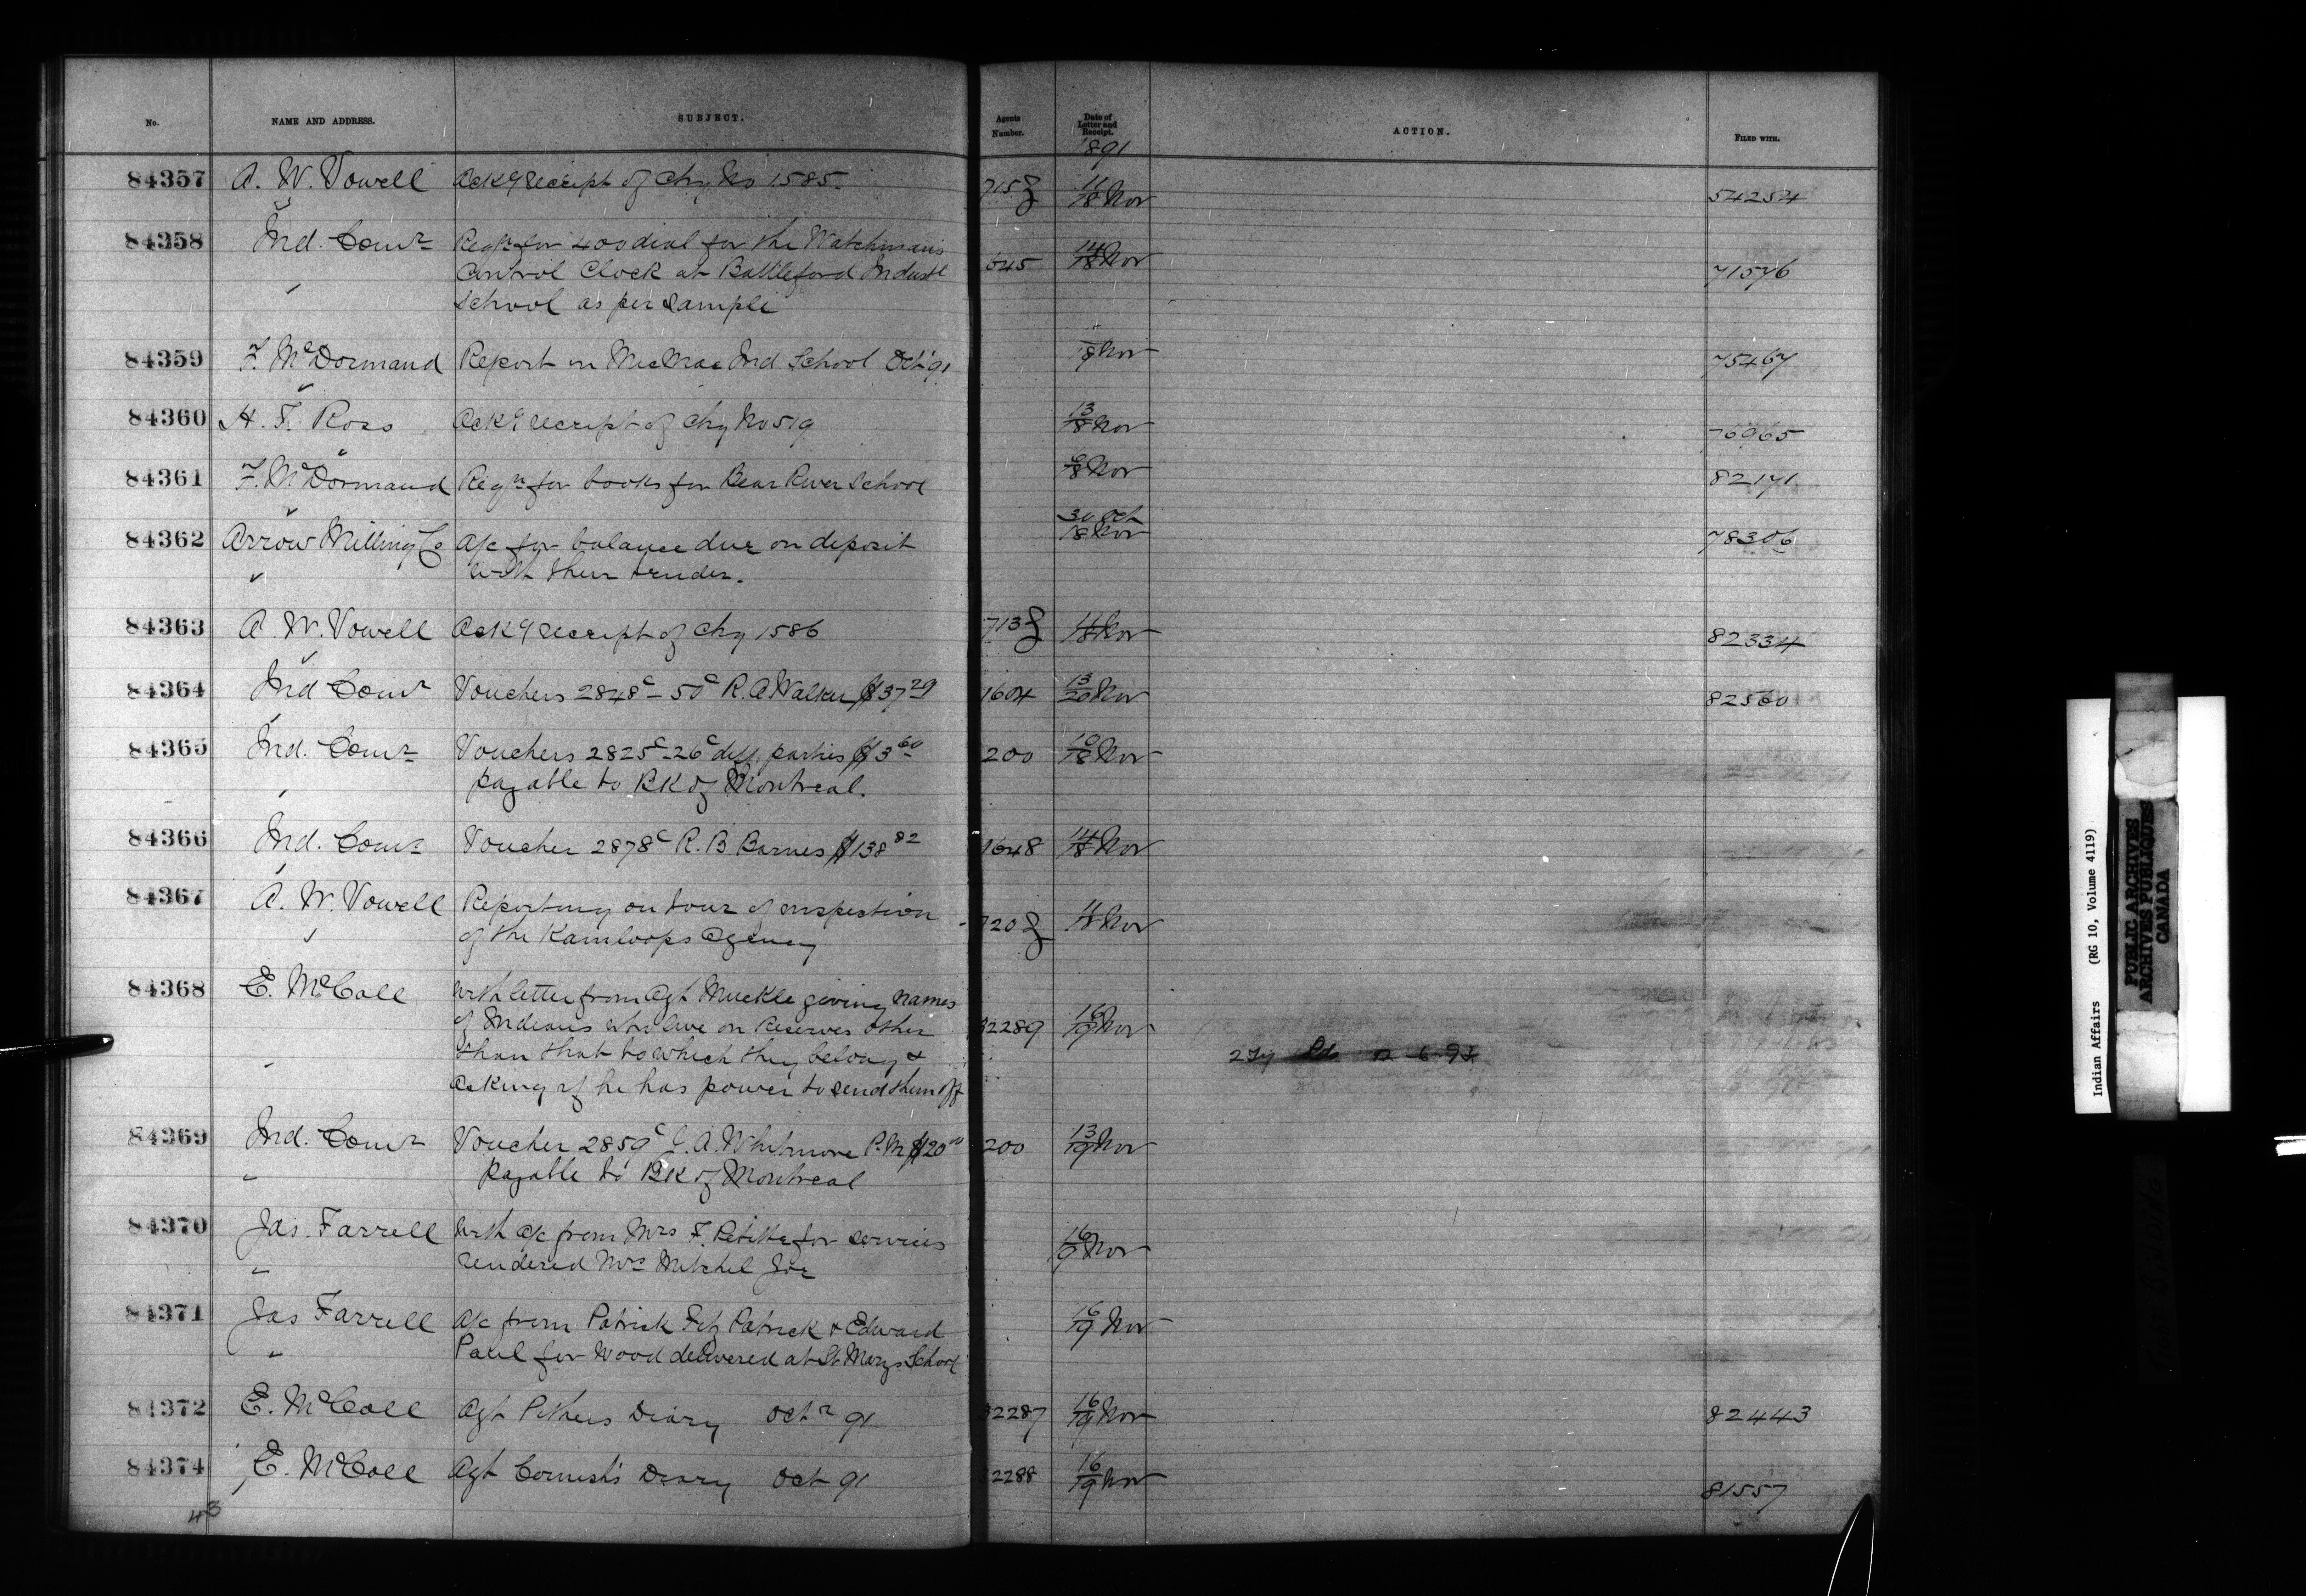 No. NAME AND ADDRESS. SUBJECT. Agents Number. Date of Letter and Receipt. ACTION. FILED WITH.
1891
84357 A. W. Vowell Ack'g receipt of Chq No 1585. 715 11/18 Nov 54254
84358 Ind. Comr Reqn for 400 dial for the Watchman's 645 14/18 Nov 71576
Control Clock at Battleford Industl
School as per sample
84359 F. McDormand Report on MicMac Ind School Oct '91 18 Nov 75467
84360 H. F. Ross Ack'g receipt of Chq No 519 13/18 Nov 76965
84361 F. McDormand Reqn for books for Bear River School 18 Nov 82171
84362 Arrow Milling Co A/c for balance due on deposit 30 Oct/18 Nov 78306
with their tender.
84363 A. W. Vowell Ack'g receipt of Chq 1586 713 11/18 Nov 82334
84364 Ind Comr Vouchers 2848c - 50c R. A. Walker $37 29 1604 13/20 Nov 82560
84365 Ind. Comr Vouchers 2825c - 26c diff. parties $3 60 200 10/18 Nov
payable to BK of Montreal.
84366 Ind. Comr Voucher 2878c R. B Barnes $138 82 1648 14/18 Nov
84367 A. W. Vowell Reporting on tour of inspection 720 11/18 Nov
of the Kamloops Agency
84368 E. McColl With letter from Agt Muckle giving names
of Indians who live on Reserves other 32289 16/19 Nov
than that to which they belong &
asking if he has power to send them off
84369 Ind. Comr Voucher 2859c J. A. Whitmore P.M $20 00 200 13/19 Nov
payable to BK of Montreal
84370 Jas. Farrell With a/c from Mrs F. for services 16/9 Nov
rendered Mrs Mitchel Joe
84371 Jas Farrell a/c from Patrick Fitz Patrick & Edward 16/19 Nov
Paul for Wood delivered at St Marys School
84372 E. McColl Agt Pithers Diary Octr 91 32287 16/19 Nov 82443
84374 E. McColl Agt Cornish's Diary Oct 91 32288 16/19 Nov 81557
43
Indian Affairs (RG 10, Volume 4119)
PUBLIC ARCHIVES
ARCHIVES PUBLIQUES
CANADA